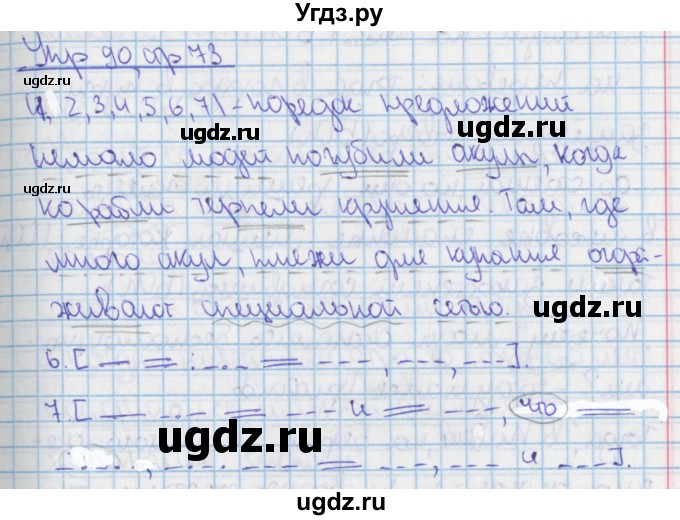 Угдз.ру
Упр 90, стр 73
(1, 2, 3, 4, 5, 6, 7) - порядок предложений
Немало людей погубили акулы, когда
корабли терпели крушения. Там, где
много акул, пляжи для купания огора-
живают специальной сетью.
6. [ — = : -.-. = ---, ---, ---].
7. [ — -.- = --- и = ---, что =
-.-.-., -.-. --- = ---, --- и ---].
ugdz.ru
ugdz.ru
ugdz.ru
ugdz.ru
ugdz.ru
ugdz.ru
ugdz.ru
ugdz.ru
ugdz.ru